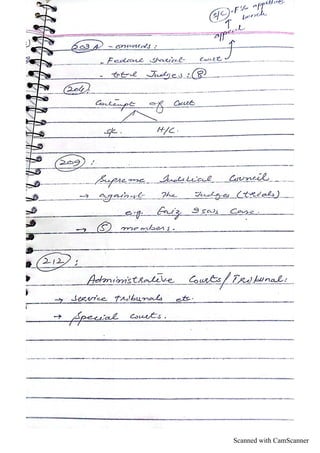 S/C → f/s appellate
bench
appeal
203 A - onwards:
- Federal Shariat Court
- total Judges: 8
204
Contempt of Court
S/C. H/C.
209:
Supreme Judicial Council
→ against the Judges (trials)
e.g. Faiz Isa's Case.
→ 5 members.
212:
Administrative Courts/Tribunal:
→ Service Tribunals etc.
→ Special Courts.
Scanned with CamScanner